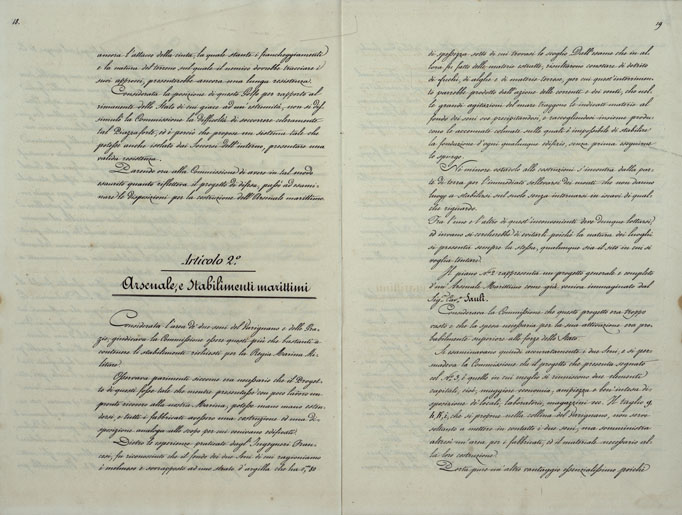 18.
ancora l'attacco della cinta, la quale stanti i fiancheggiamenti
e la natura del terreno sul quale il nemico dovrebbe tracciare i
suoi approcci, presenterebbe ancora una lunga resistenza.
Considerata la posizione di questo Golfo per rapporto al
rimanente dello Stato di cui giace ad un'estremità, non si dis-
simulò la Commissione la difficoltà di soccorrere celeremente
tal Piazzaforte, ed è perciò che propose un sistema tale che
potesse anche isolata dai Soccorsi dell'interno, presentare una
valida resistenza.
Parendo ora alla Commissione di avere in tal modo
esaurito quanto rifletteva il progetto di difesa, passò ad esami-
nare le disposizioni per la costruzione dell'Arsenale marittimo.
Articolo 2.º
Arsenale, e Stabilimenti marittimi
Considerata l'area de' due seni del Varignano e delle Gra-
zie, giudicava la Commissione essere questi più che bastanti a
contenere li stabilimenti richiesti per la Regia Marina Mi-
litare.
Osservava parimenti siccome era necessario che il Proget-
to di questi fosse tale che mentre presentasse con poco lavoro un
pronto ricovero alla nostra Marina, potesse mano mano esten-
dersi, e tutti i fabbricati avessero una costruzione ed una di-
sposizione analoga allo scopo per cui venivano edificati.
Dietro le esperienze praticate dagl'Ingegneri Fran-
cesi, fu riconosciuto che il fondo dei due Seni di cui ragioniamo
è melmoso e sovrapposto ad uno strato d'argilla che ha 1,m80
19
di spessezza sotto di cui trovasi lo scoglio. Dall'esame che in al-
lora fu fatto delle materie estratte, risultarono constare di detrito
di fuchi, di alghe e di materia terrosa, per cui quest'interrimen-
to parrebbe prodotto dall'azione delle correnti e dei venti, che nel-
le grandi agitazioni del mare traggono le indicate materie al
fondo dei seni ove precipitandosi, e raccogliendosi insieme produ-
cono le accennate colmate sulle quali è impossibile di stabilire
la fondazione d'ogni qualunque edifizio, senza prima eseguirne
lo spurgo.
Nè minore ostacolo alle costruzioni s'incontra dalla par-
te di terra per l'immediato sollevarsi dei monti che non danno
luogo a stabilirsi sul suolo senza internarsi in iscavi di qual-
che riguardo.
Fra l'uno e l'altro di quest'inconvenienti devo dunque lottarsi
ed invano si cercherebbe di evitarli poichè la natura dei luoghi
si presenta sempre la stessa, qualunque sia il sito in cui si
voglia tentare.
Il piano N.º 2 rappresenta un progetto generale e completo
d'un Arsenale Marittimo come già veniva immaginato dal
Sig.r Cav.re Sauli.
Considerava la Commissione che questo progetto era troppo
vasto e che la spesa necessaria per la sua attivazione era pro-
babilmente superiore alle forze dello Stato.
Si esaminarono quindi accuratamente i due Seni, e si per-
suadeva la Commissione che il progetto che presenta segnato
col N.º 3, è quello in cui meglio si riunivano due elementi
capitali, cioè, maggiore economia, ampiezza e ben intesa di-
sposizione de' locali, laboratori, magazzeni ecc. Il taglio g,
h, K, i, che si propone nella collina del Varignano, non serve
soltanto a mettere in contatto i due seni, ma somministra
altresì un'area per i fabbricati, ed il materiale necessario al-
la loro costruzione.
Porta pure un altro vantaggio essenzialissimo poichè